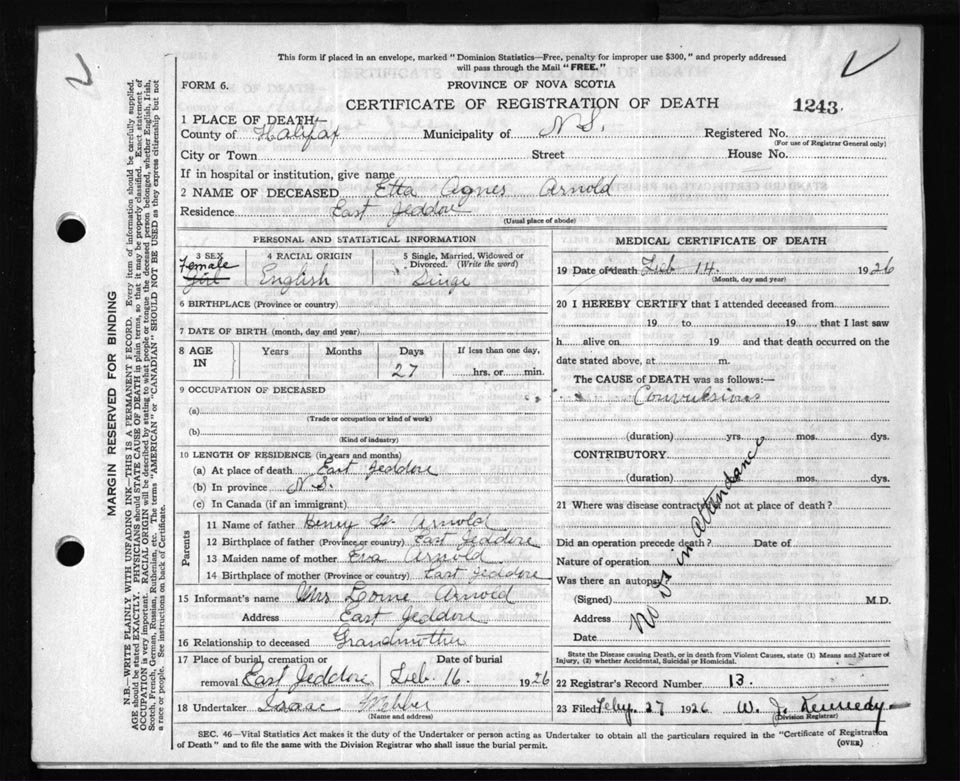 This form if placed in an envelope, marked "Dominion Statistics—Free, penalty for improper use $300," and properly addressed
will pass through the Mail "FREE."
FORM 6.
PROVINCE OF NOVA SCOTIA
CERTIFICATE OF REGISTRATION OF DEATH
1243
1 PLACE OF DEATH
County of Halifax Municipality of N S. Registered No.
(For use of Registrar General only)
City or Town Street House No.
If in hospital or institution, give name
2 NAME OF DECEASED Etta Agnes Arnold
Residence East Jeddore
(Usual place of abode)
PERSONAL AND STATISTICAL INFORMATION
3 SEX Female Girl
4 RACIAL ORIGIN English
5 Single, Married, Widowed or Divorced. (Write the word)
6 BIRTHPLACE (Province or country)
7 DATE OF BIRTH (month, day and year)
8 AGE IN Years Months Days 27 If less than one day, hrs. or min.
9 OCCUPATION OF DECEASED
(a)
(Trade or occupation or kind of work)
(b)
(Kind of industry)
10 LENGTH OF RESIDENCE (in years and months)
(a) At place of death East Jeddore
(b) In province N.S.
(c) In Canada (if an immigrant)
Parents
11 Name of father Henry Arnold
12 Birthplace of father (Province or country) East Jeddore
13 Maiden name of mother Eva Arnold
14 Birthplace of mother (Province or country) East Jeddore
15 Informant's name Mrs Lorne Arnold
Address East Jeddore
16 Relationship to deceased Grandmother
17 Place of burial, cremation or removal East Jeddore Date of burial Feb. 16. 1926
18 Undertaker Isaac Webber
(Name and address)
MEDICAL CERTIFICATE OF DEATH
19 Date of death Feb 14. 1926
(Month, day and year)
20 I HEREBY CERTIFY that I attended deceased from
19 to 19 , that I last saw
h alive on 19 and that death occurred on the
date stated above, at m.
The CAUSE OF DEATH was as follows:—
Convulsions
(duration) yrs. mos. dys.
CONTRIBUTORY
(duration) yrs. mos. dys.
21 Where was disease contracted if not at place of death?
Did an operation precede death? Date of
Nature of operation
Was there an autopsy
(Signed) M.D.
Address
Date
No Dr in attendance
State the Disease causing Death, or in death from Violent Causes, state (1) Means and Nature of
Injury, (2) whether Accidental, Suicidal or Homicidal.
22 Registrar's Record Number 13.
23 Filed Feby. 27 1926 W. J. Kennedy
(Division Registrar)
SEC. 46—Vital Statistics Act makes it the duty of the Undertaker or person acting as Undertaker to obtain all the particulars required in the "Certificate of Registration
of Death" and to file the same with the Division Registrar who shall issue the burial permit.
(OVER)
MARGIN RESERVED FOR BINDING
N.B.—WRITE PLAINLY WITH UNFADING INK—THIS IS A PERMANENT RECORD. Every item of information should be carefully supplied.
AGE should be stated EXACTLY. PHYSICIANS should STATE CAUSE OF DEATH in plain terms, so that it may be properly classified. Exact statement of
OCCUPATION is very important. RACIAL ORIGIN will be described by stating to what people or tongue the deceased person belonged, whether English, Irish,
Scotch, French, German, Russian, Ruthenian, etc. The terms "AMERICAN" or "CANADIAN" SHOULD NOT BE USED as they express citizenship but not
a race or people. See instructions on back of Certificate.